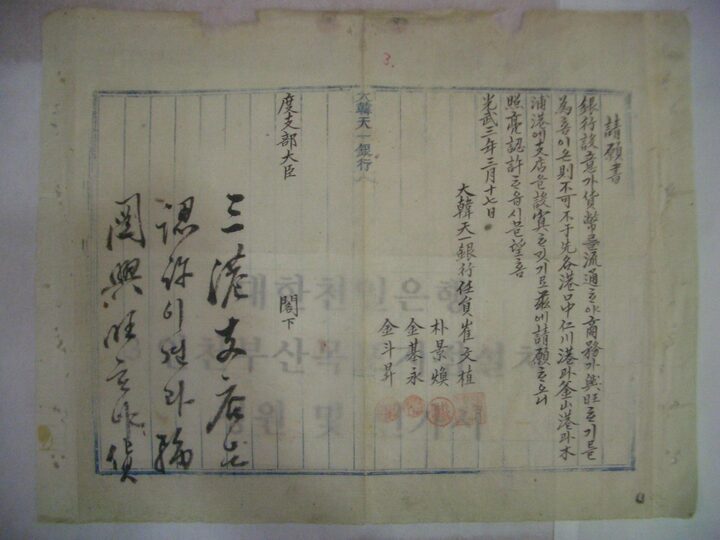 請願書
銀行設意가貨幣를流通ᄒᆞ야商務가興旺ᄒᆞ기를
為喜이온則不可不于先各港口中仁川港과釜山港과木
浦港에支店을設寘ᄒᆞ깃기로玆에請願ᄒᆞ오니
照亮認許ᄒᆞ옵시믈望喜
光武三年三月十七日
大韓天一銀行任員崔文植
朴景煥
金基永
金斗昇
大韓天一銀行
度支部大臣 閣下
三港支店
認許이
圖興旺ᄒᆞ야貨
대한천일은행
부산목
청원 및 인가서
3.